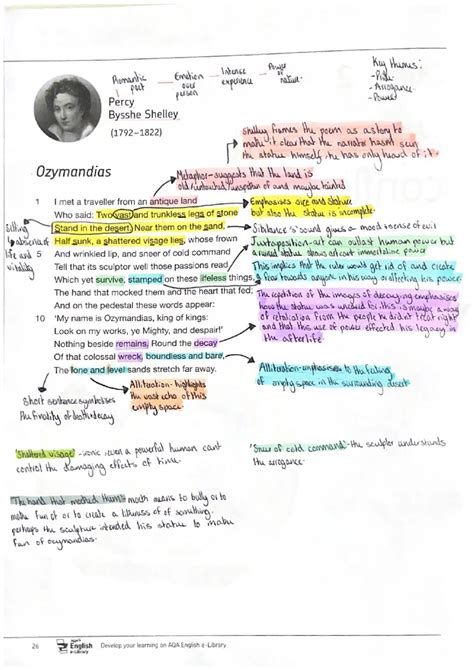 Romantic poet
Emotion over person
Intense experience
Power of nature.
Key themes:
- Pride
- Arrogance
- Power
Percy
Bysshe Shelley
(1792–1822)
Shelley frames the poem as a story to
make it clear that the narrator hasn't seen
the statue himself, he has only heard of it.
Ozymandias
Metaphor - suggests that the land is
old and maybe tainted
1 I met a traveller from an antique land
Who said: Two vast and trunkless legs of stone
Stand in the desert. Near them on the sand,
Half sunk, a shattered visage lies, whose frown
5 And wrinkled lip, and sneer of cold command
Tell that its sculptor well those passions read
Which yet survive, stamped on these lifeless things,
The hand that mocked them and the heart that fed:
And on the pedestal these words appear:
10 'My name is Ozymandias, king of kings:
Look on my works, ye Mighty, and despair!'
Nothing beside remains. Round the decay
Of that colossal wreck, boundless and bare,
The lone and level sands stretch far away.
Setting
absence
life and
vitality
Emphasises size and stature
but also the statue is incomplete.
Sibilance 's' sound gives a mood + sense of evil
Juxtaposition - art can outlast human power but
ruined statue shows art can't immortalise power
This implies that the ruler would get rid of and create
fear towards anyone in his way reflecting his power.
The repetition of the images of decaying emphasises
how the statue was wrecked for this is maybe a way
of retaliation from the people he didn't treat right
and that his use of power effected his legacy in
the afterlife.
Alliteration - emphasises to the feeling
of empty space in the surrounding desert
Alliteration - highlights
the vast echo of this
empty space.
Short sentence symbolises
the finality of death + decay
'Shattered visage' - ironic, even a powerful human cant
control the damaging effects of time.
'Sneer of cold command' - the sculptor understands
the arrogance.
'The hand that mocked them' - mock means to bully or to
make fun of or to create a likeness of of something.
perhaps the sculpture intended his statue to make
fun of ozymandias.
26
English
e-Library
Develop your learning on AQA English e-Library